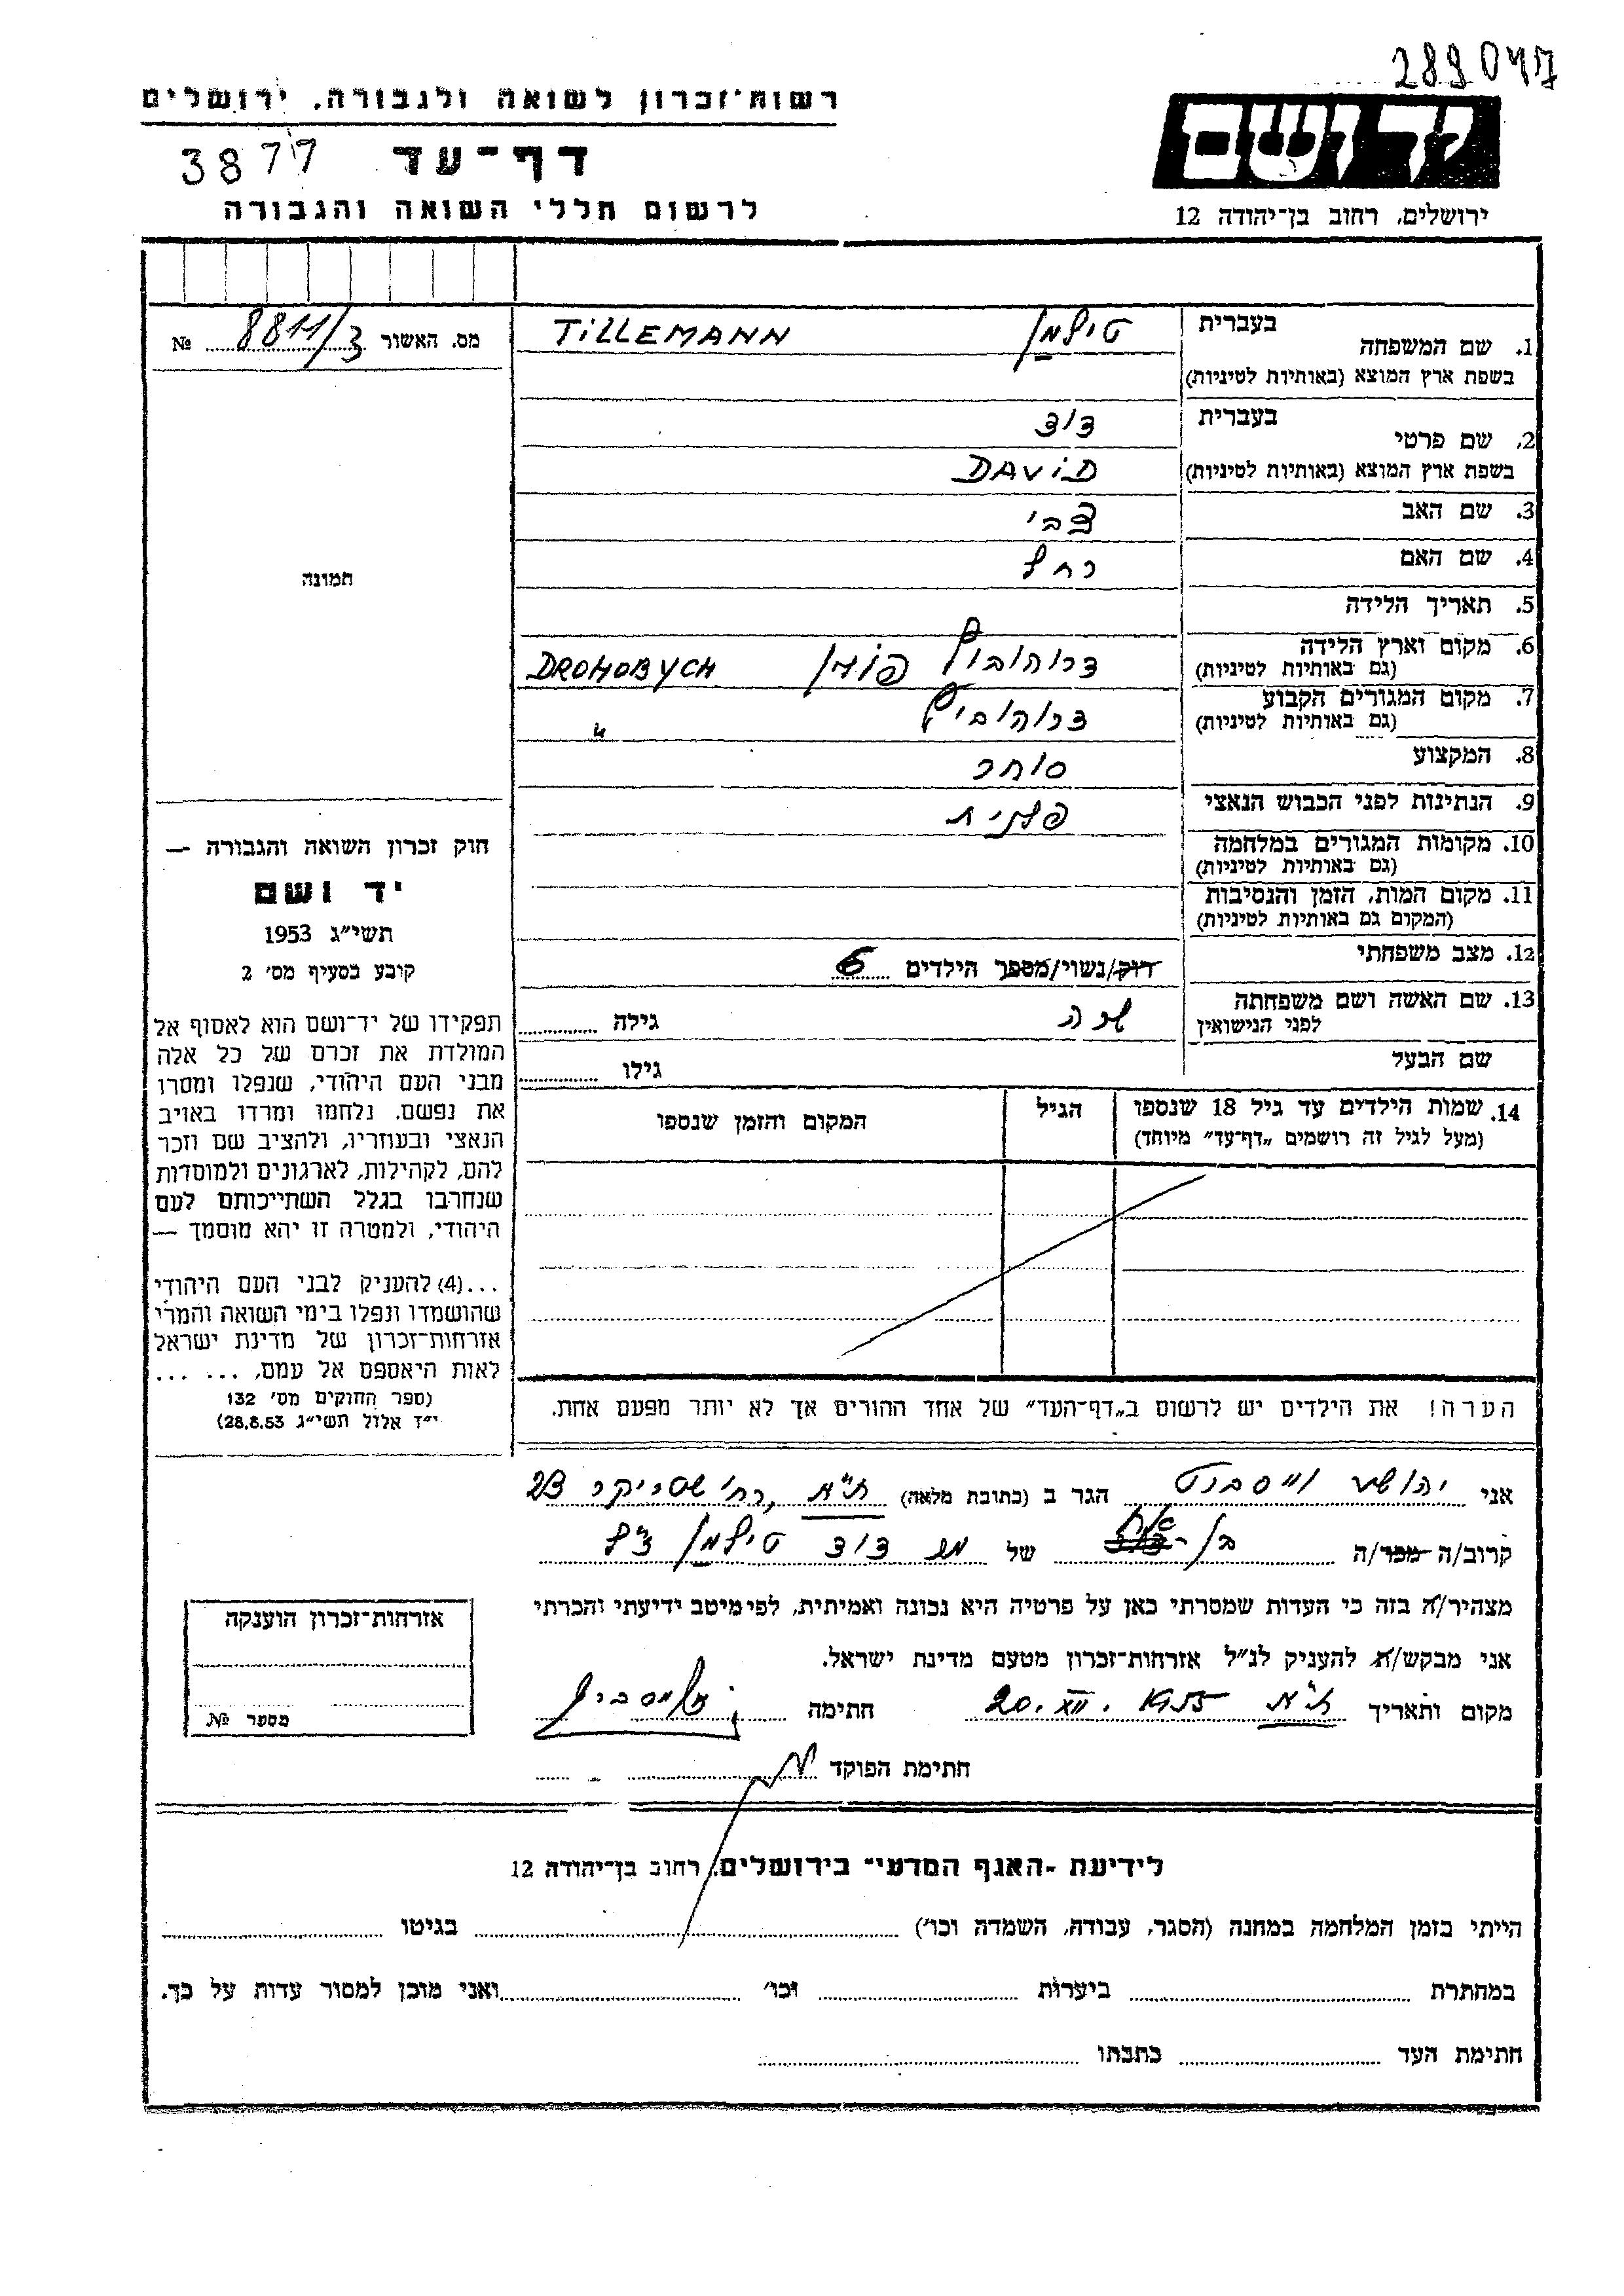 289047
רשות־זכרון לשואה ולגבורה, ירושלים
יד ושם
דף־עד 3877
לרשום חללי השואה והגבורה
ירושלים, רחוב בן־יהודה 12
מס. האשור 8811/3 №
1. שם המשפחה בעברית טילמן TILLEMANN
בשפת ארץ המוצא (באותיות לטיניות)
2. שם פרטי בעברית דוד
בשפת ארץ המוצא (באותיות לטיניות) DAVID
3. שם האב צבי
4. שם האם רחל
5. תאריך הלידה
6. מקום וארץ הלידה דרוהוביץ פולין DROHOBYCH
(גם באותיות לטיניות)
7. מקום המגורים הקבוע דרוהוביץ "
(גם באותיות לטיניות)
8. המקצוע סוחר
9. הנתינות לפני הכבוש הנאצי פלנית
10. מקומות המגורים במלחמה
(גם באותיות לטיניות)
11. מקום המות, הזמן והנסיבות
(המקום גם באותיות לטיניות)
12. מצב משפחתי רווק/נשוי/מספר הילדים 6
13. שם האשה ושם משפחתה לפני הנישואין שרה גילה
שם הבעל גילו
14. שמות הילדים עד גיל 18 שנספו הגיל המקום והזמן שנספו
(מעל לגיל זה רושמים „דף־עד” מיוחד)
הערה! את הילדים יש לרשום ב„דף־העד” של אחד ההורים אך לא יותר מפעם אחת.
תמונה
חוק זכרון השואה והגבורה —
יד ושם
תשי״ג 1953
קובע בסעיף מס׳ 2
תפקידו של יד־ושם הוא לאסוף אל
המולדת את זכרם של כל אלה
מבני העם היהודי, שנפלו ומסרו
את נפשם, נלחמו ומרדו באויב
הנאצי ובעוזריו, ולהציב שם וזכר
להם, לקהילות, לארגונים ולמוסדות
שנחרבו בגלל השתייכותם לעם
היהודי, ולמטרה זו יהא מוסמך —
...(4) להעניק לבני העם היהודי
שהושמדו ונפלו בימי השואה והמרי
אזרחות־זכרון של מדינת ישראל
לאות היאספם אל עמם, ... ...
(ספר החוקים מס׳ 132
י״ד אלול תשי״ג 28.8.53)
אני יהושע וייסברט הגר ב (כתובת מלאה) ת״א, רח׳ שטריקר 23
קרוב/ה מכר/ה בן־אחות של מר דוד טילמן ז״ל
מצהיר/ה בזה כי העדות שמסרתי כאן על פרטיה היא נכונה ואמיתית, לפי מיטב ידיעתי והכרתי
אני מבקש/ת להעניק לנ״ל אזרחות־זכרון מטעם מדינת ישראל.
מקום ותאריך ת״א 20.XII.1955 חתימה
חתימת הפוקד
אזרחות־זכרון הוענקה
מספר №
לידיעת „האגף המדעי” בירושלים, רחוב בן־יהודה 12
הייתי בזמן המלחמה במחנה (הסגר, עבודה, השמדה וכו׳) בגיטו
במחתרת ביערות וכו׳ ואני מוכן למסור עדות על כך.
חתימת העד כתבתו